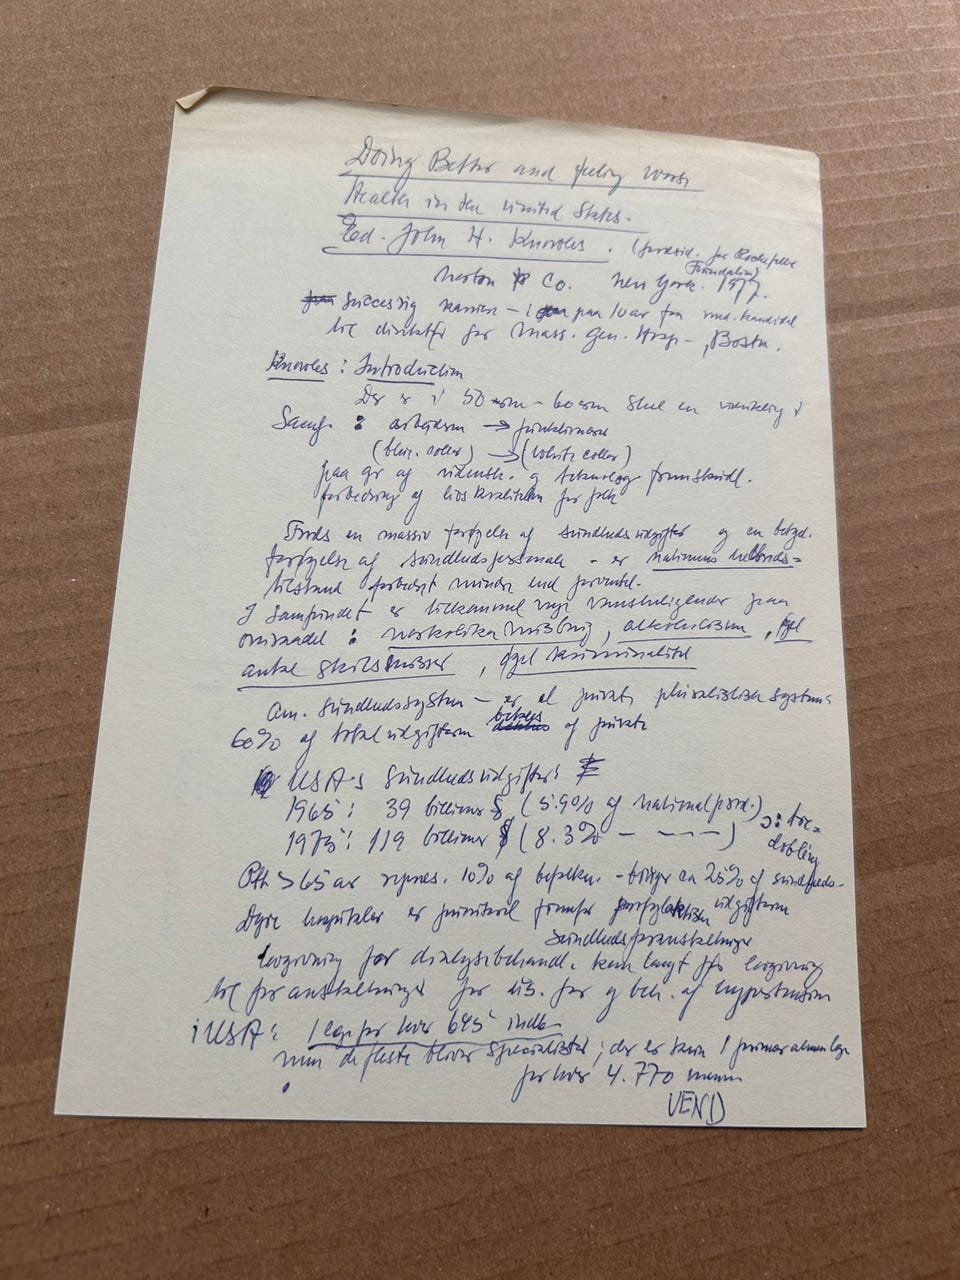 Doing Better and feeling worse
Health in the United States.
Ed. John H. Knowles. (forhv. præsid. for Rockefeller
Foundation)
Norton & Co. New York. 1977.
karriere – i paa 10 aar fra med. kandidat
til direktør for Mass. Gen. Hosp., Boston.
Knowles : Introduction
Der er i 50erne – 60erne sket en udvikling i
Samf. : arbejdere → funktionære
(blue. coller) → (white coller)
paa gr af vidensk. og teknolog fremskridt.
forbedring af livskvaliteten for folk
Trods en massiv forøgelse af sundhedsudgifter og en betyd.
forøgelse af sundhedspersonale – er nationens helbreds=
tilstand forbedret mindre end forventet.
I samfundet er tilkommet nye vanskeligheder paa
omraadet : narkotika misbrug, alkoholisme, øget
antal skilsmisser, øget kriminalitet
Am. sundhedssystem – er et privat, pluralistisk system=
60% af totaludgifterne betales af private
USA's sundhedsudgifter:
1965 : 39 billioner $ (5.9% af nationalprod.)
1975 : 119 billioner $ (8.3% – – – –) ɔ: tre=
dobling
Ptt >65 aar repræs. 10% af befolkn. – bruger ca 25% af sundheds-
Dyre hospitaler er prioriteret fremfor profylaktiske udgifterne
sundhedsforanstaltninger
lovgivning for dialysebehandl. kom langt før lovgivning
til foranstaltninger for og beh. af hypertension
i USA: 1 læge for hver 645 indb.
men de fleste bliver specialister; der er kun 1 primær almenlæge
for hver 4.770 mennn
VEND